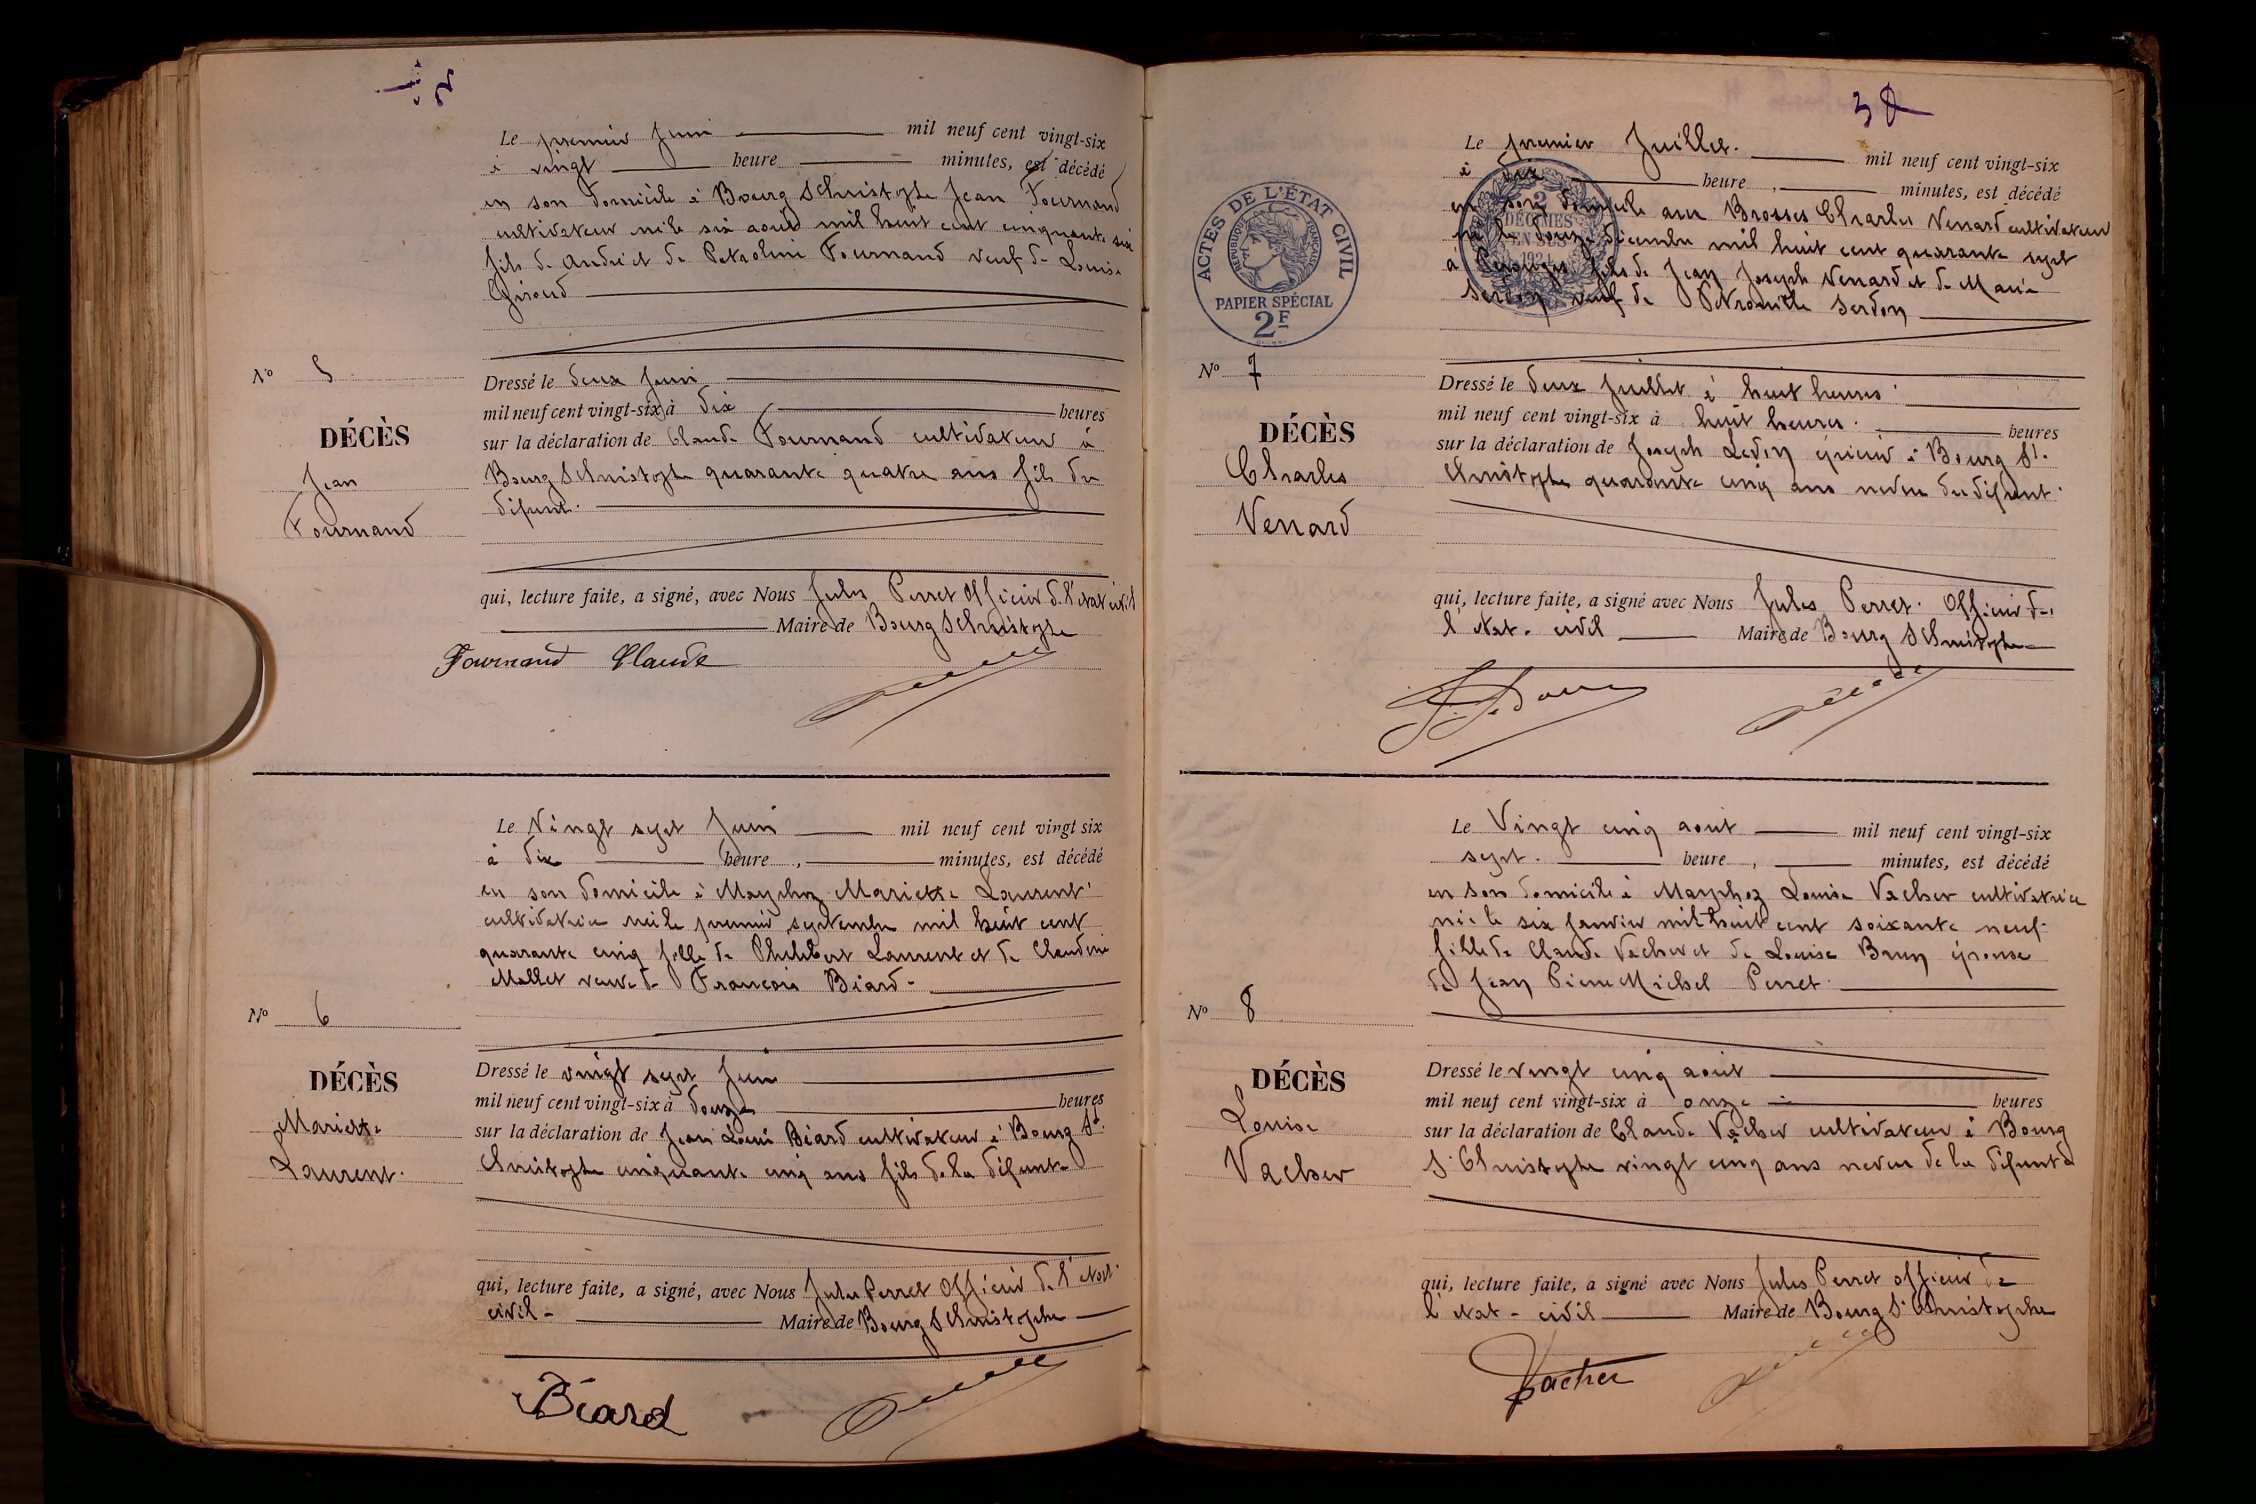 Le premier Juin mil neuf cent vingt-six
à vingt heure minutes, est décédé
en son domicile à Bourg S Christophe Jean Fournand
cultivateur né le six août mil huit cent cinquante six
fils de André et de Petroline Fournand veuf de Louise
Giroud
N° 5
DÉCÈS
Jean
Fournand
Dressé le deux Juin
mil neuf cent vingt-six à dix heures
sur la déclaration de Claude Fournand cultivateur à
Bourg S Christophe quarante quatre ans fils du
défunt.
qui, lecture faite, a signé, avec Nous Jules Perret Officier de l'état civil
Maire de Bourg S Christophe
Fournand Claude
Le Vingt sept Juin mil neuf cent vingt six
à dix heure, minutes, est décédé
en son domicile à Marphoz Mariette Laurent
cultivatrice née le premier septembre mil huit cent
quarante cinq fille de Philibert Laurent et de Claudine
Mallet veuve de François Béard
N° 6
DÉCÈS
Mariette
Laurent.
Dressé le vingt sept Juin
mil neuf cent vingt-six à douze heures
sur la déclaration de Jean Louis Béard cultivateur à Bourg St
Christophe cinquante cinq ans fils de la défunte
qui, lecture faite, a signé, avec Nous Jules Perret Officier de l'état
civil - Maire de Bourg S Christophe
Béard
3
Le premier Juillet. mil neuf cent vingt-six
à dix heure, minutes, est décédé
en son domicile aux Brosses Charles Venard cultivateur
né le douze décembre mil huit cent quarante sept
à Perouges fils de Jean Joseph Venard et de Marie
Serdon veuf de Petronille Serdon
ACTES DE L'ÉTAT CIVIL
RÉPUBLIQUE FRANÇAISE
PAPIER SPÉCIAL
2F
2
DÉCIMES
EN SUS
1924
N° 7
DÉCÈS
Charles
Venard
Dressé le deux Juillet à huit heures
mil neuf cent vingt-six à huit heures. heures
sur la déclaration de Joseph Ledon épicier à Bourg St.
Christophe quarante cinq ans neveu du défunt.
qui, lecture faite, a signé avec Nous Jules Perret. Officier de
l'état. civil Maire de Bourg S Christophe
Le Vingt cinq août mil neuf cent vingt-six
sept. heure, minutes, est décédé
en son domicile à Marphoz Louise Vacher cultivatrice
née le six Janvier mil huit cent soixante neuf.
fille de Claude Vacher et de Louise Brun épouse
de Jean Pierre Michel Perret.
N° 8
DÉCÈS
Louise
Vacher
Dressé le vingt cinq août
mil neuf cent vingt-six à onze heures
sur la déclaration de Claude Vacher cultivateur à Bourg
S. Christophe vingt cinq ans neveu de la défunte
qui, lecture faite, a signé avec Nous Jules Perret officier de
l'état - civil Maire de Bourg S. Christophe
Vacher